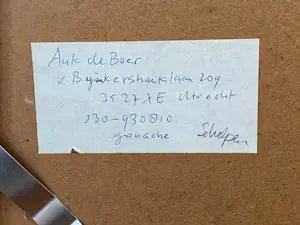 Ank de Boer
v Bynkershoeklaan 204
3527 XE Utrecht
030-930810
gouache Schelpen